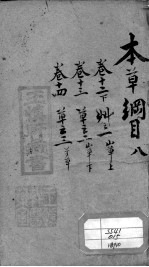 本草綱目 八
卷十二下 艸之一 山草上
卷十三 草之二 山草下
卷十四 草之三 芳草
3541
015